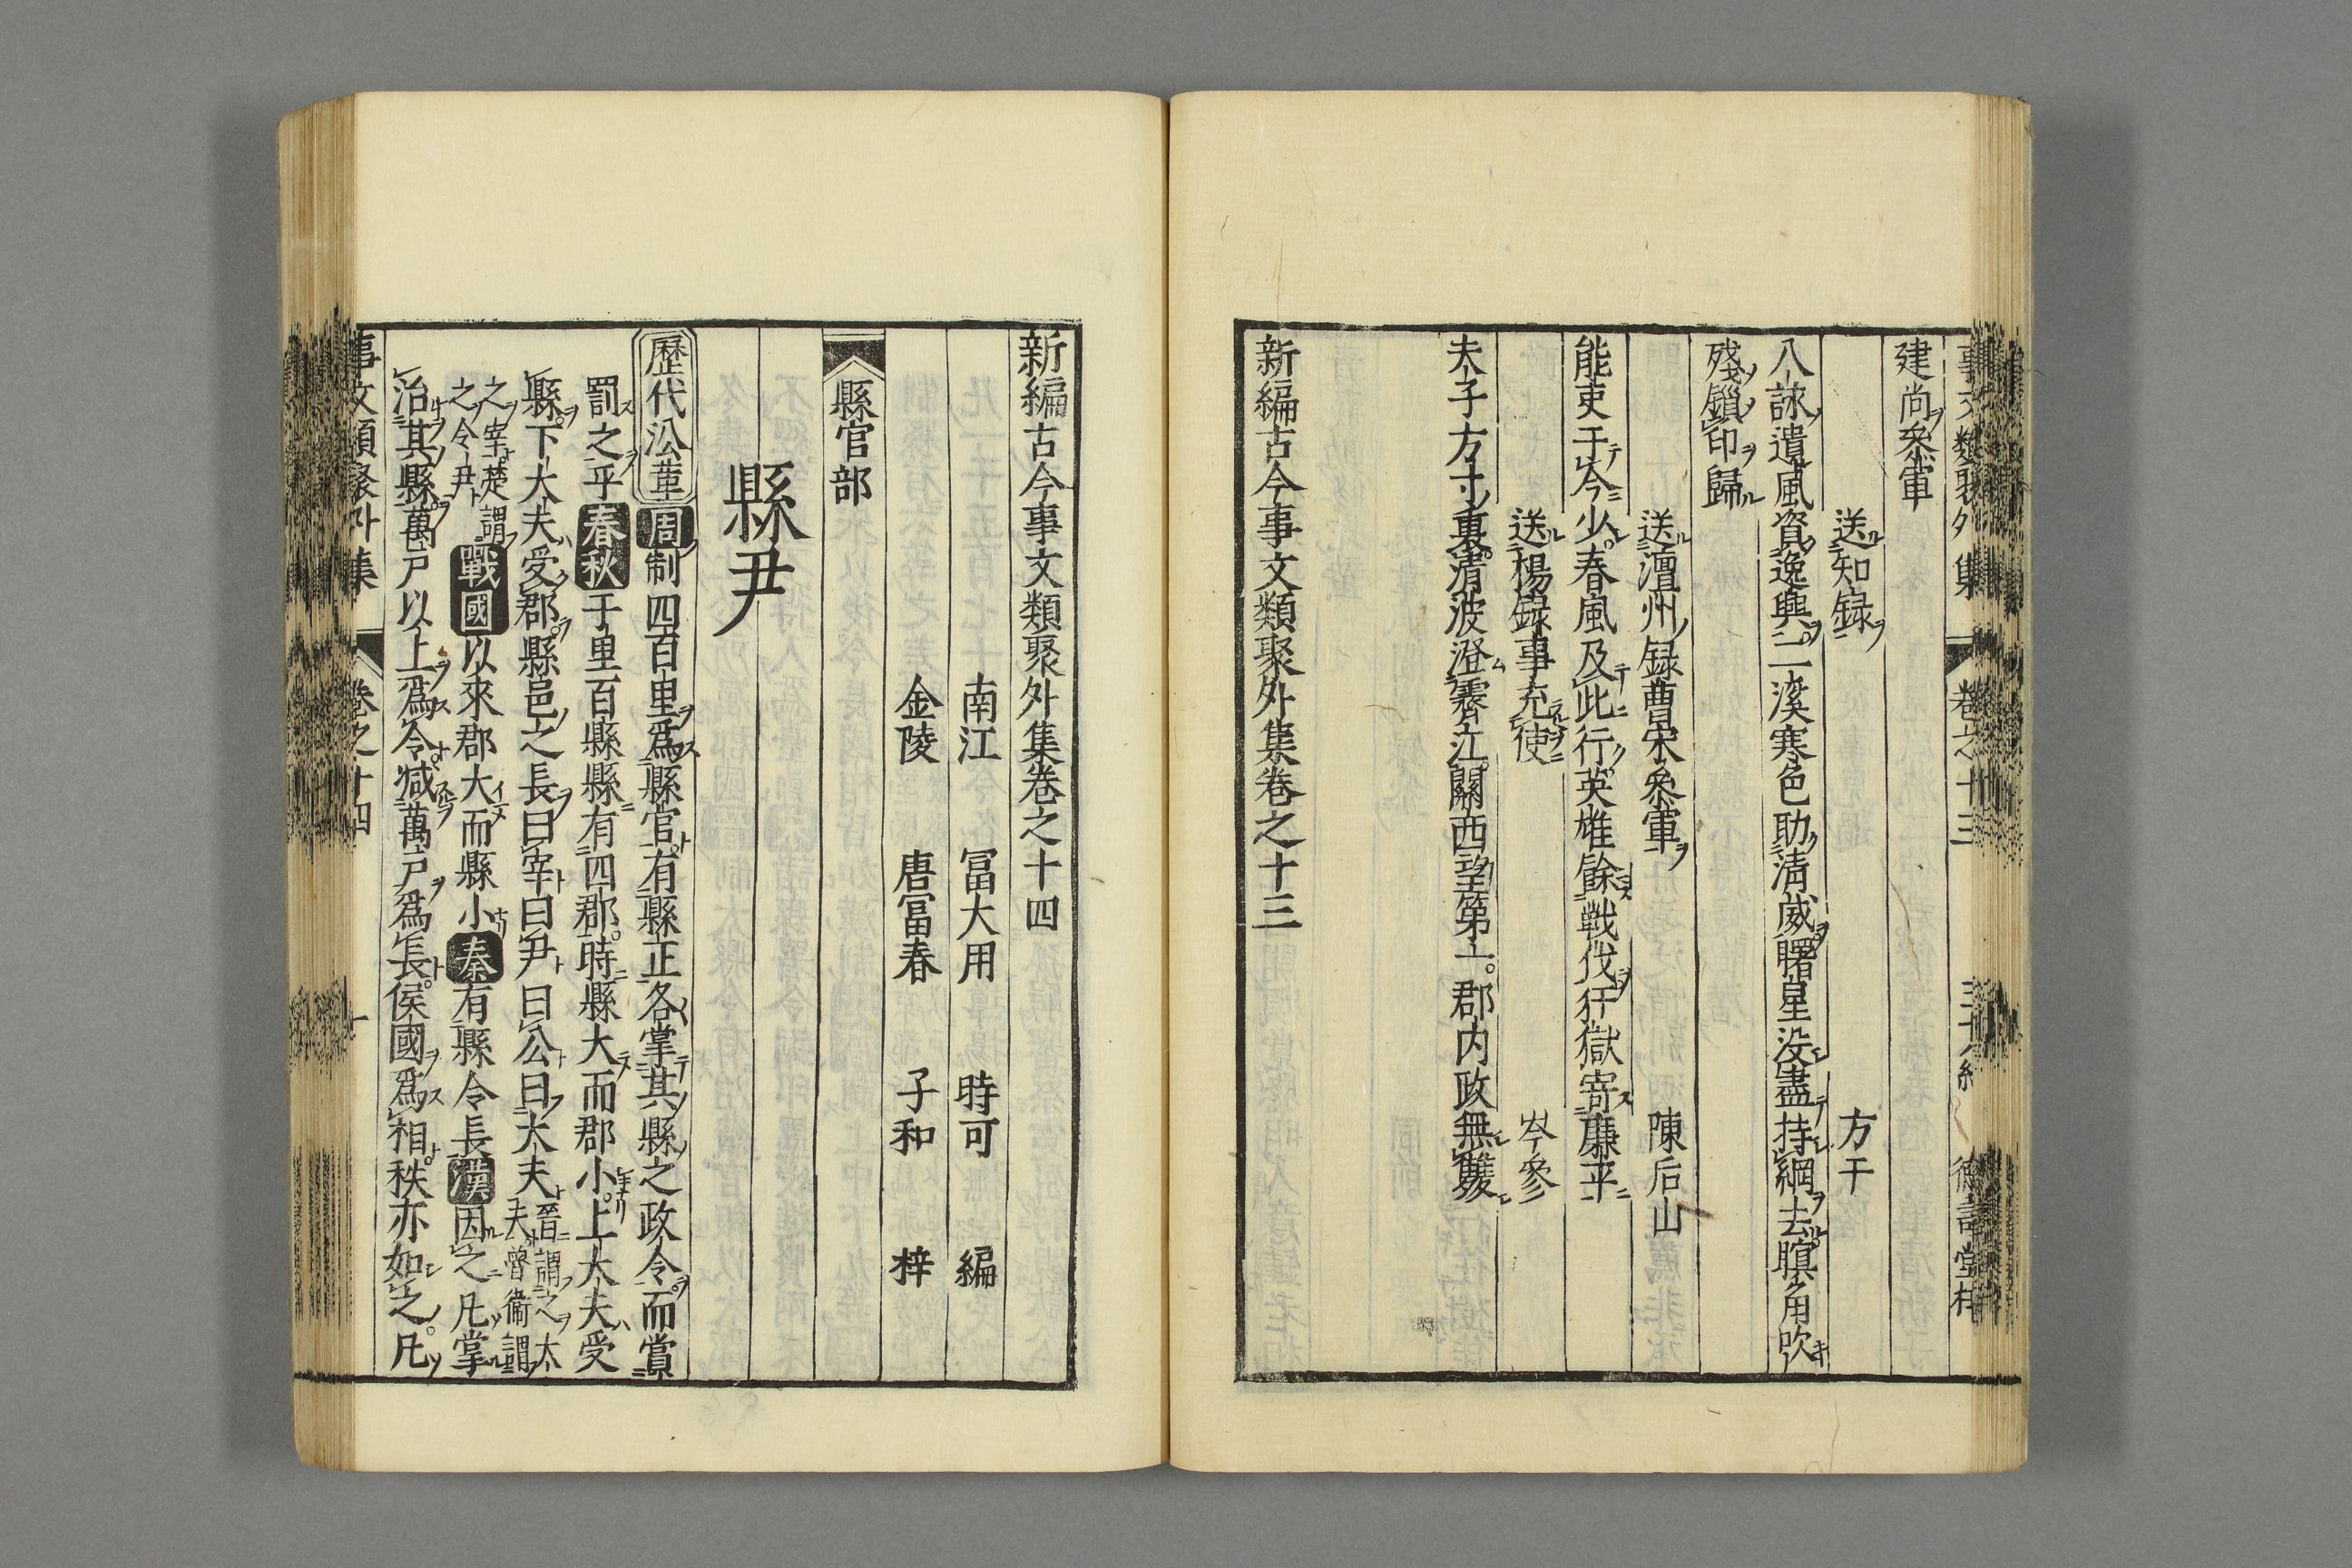 建尚參軍
送知録　方干
八詠遺風資逸興二溪寒色助清威曙星没盡持綱去瞑角吹
殘鎻印歸
送澶州録曹宋參軍　陳后山
能吏于今少春風及此行英雄餘戰伐犴獄寄廉平
送楊録事充使　岑參
夫子方寸裏清波澄霽江關西望第一郡内政無雙
新編古今事文類聚外集卷之十三
新編古今事文類聚外集卷之十四
南江　冨大用　時可　編
金陵　唐冨春　子和　梓
縣官部
縣尹
歷代沿革周制四百里爲縣官有縣正各掌其縣之政令而賞
罰之乎春秋千里百縣縣有四郡時縣大而郡小上大夫受
縣下大夫受郡縣邑之長曰宰曰尹曰公曰大夫晉謂之大夫魯衞謂
之宰楚謂之令尹戰國以來郡大而縣小秦有縣令長漢因之凡掌
治其縣萬户以上爲令減萬户爲長侯國爲相秩亦如之凡
事文類聚外集　卷之十四　一